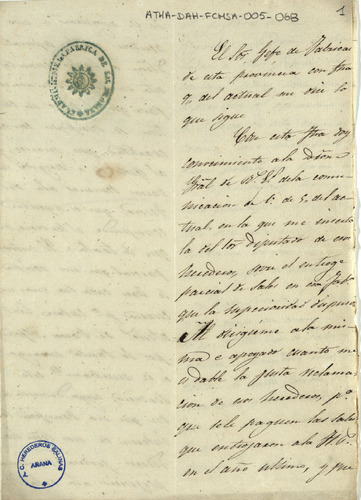 ATHA-DAH-FCMSA-005-068
1
El Sor. Gefe de Fabricas
de esta provincia con fha
7 del actual me dice lo
que sigue
Con esta fha doy
conocimiento a la Dion
Gral de R.s de la comu
nicacion de V. de 5 del ac
tual en la que me inserta
la del Sor Diputado de esos
herederos, sobre el entrego
parcial de sales en esa Fab
que la superioridad dispuso
Al dirigirme a la mis
ma é apoyado cuanto me
es dable la justa reclama
cion de esos herederos, pa.
que se le paguen las sales
que entregaron a la H.P.
en el año ultimo, y que
A.C. HEREDEROS SALINAS
AÑANA